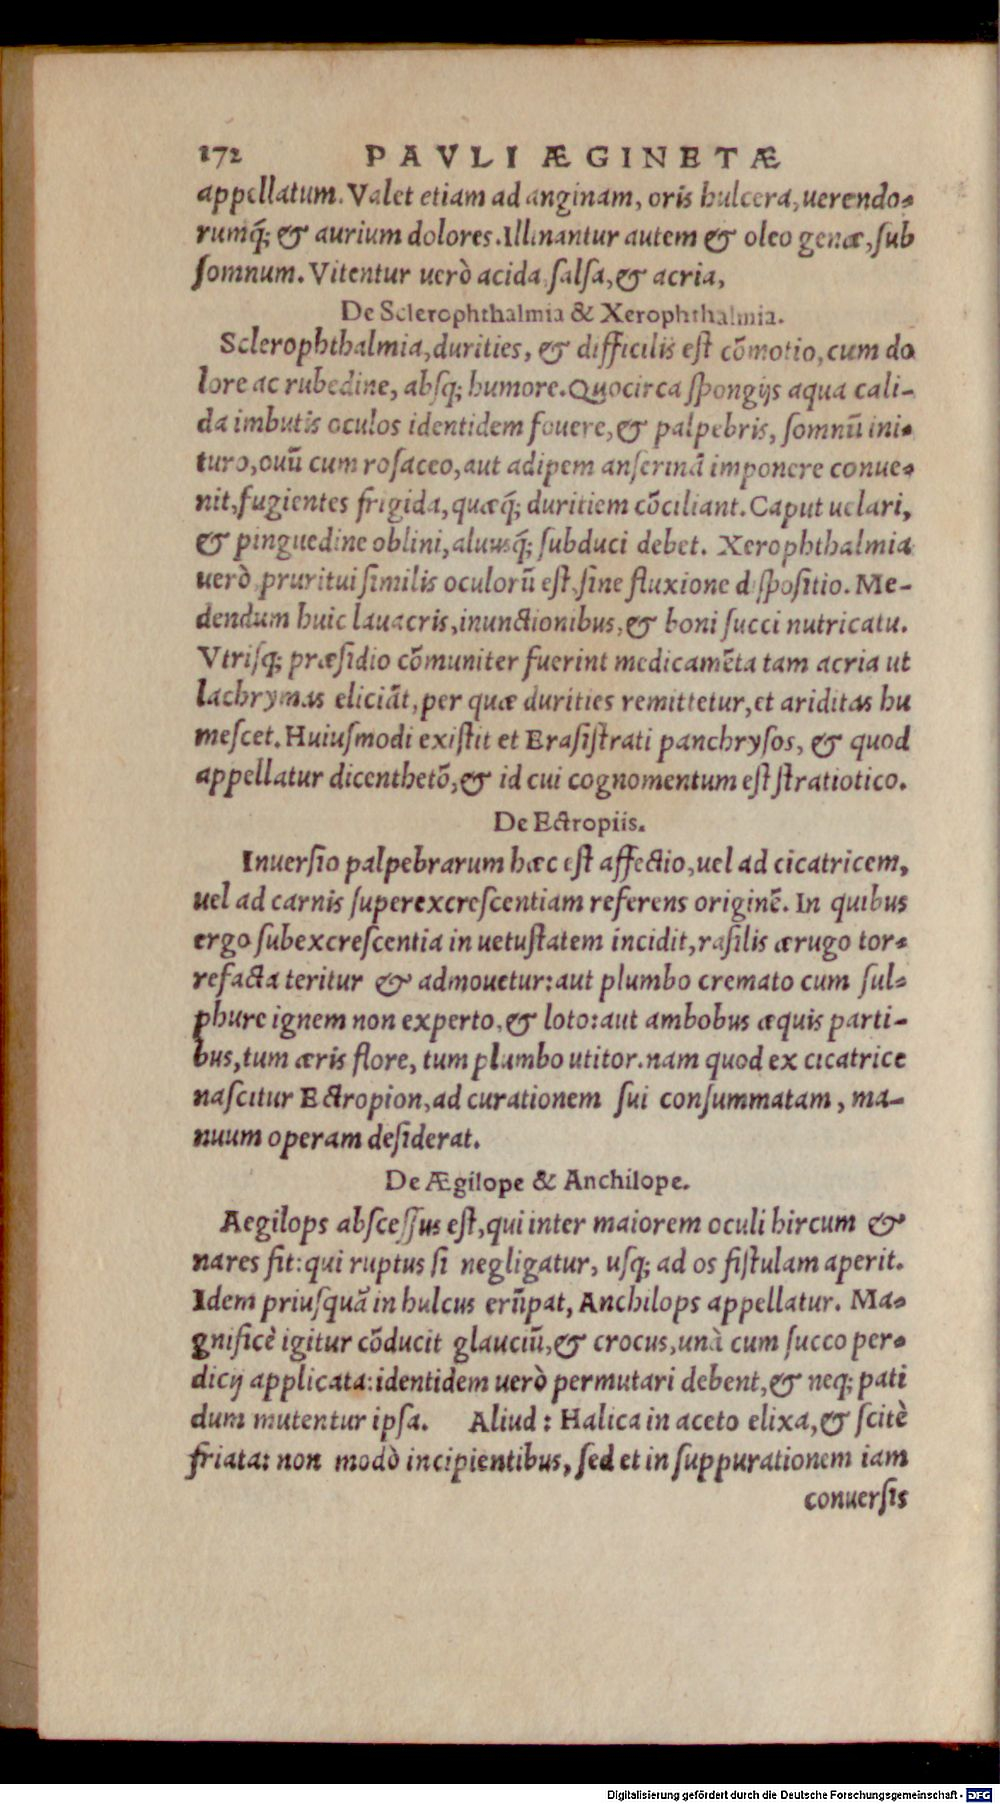 172 PAVLI ÆGINETÆ
appellatum. Valet etiam ad anginam, oris hulcera, uerendo-
rumq́; & aurium dolores. Illinantur autem & oleo genæ, sub
somnum. Vitentur uerò acida, salsa, & acria,
De Sclerophthalmia & Xerophthalmia.
Sclerophthalmia, durities, & difficilis est cõmotio, cum do
lore ac rubedine, absq; humore. Quocirca spongijs aqua cali-
da imbutis oculos identidem fouere, & palpebris, somnũ ini-
turo, ouũ cum rosaceo, aut adipem anserinã imponere conue-
nit, fugientes frigida, quæq́; duritiem cõciliant. Caput uelari,
& pinguedine oblini, aluusq́; subduci debet. Xerophthalmia
uerò, pruritui similis oculorũ est, sine fluxione dispositio. Me-
dendum huic lauacris, inunctionibus, & boni succi nutricatu.
Vtrisq; præsidio cõmuniter fuerint medicamẽta tam acria ut
lachrymas eliciãt, per quæ durities remittetur, et ariditas hu
mescet. Huiusmodi existit et Erasistrati panchrysos, & quod
appellatur dicenthetõ, & id cui cognomentum est stratiotico.
De Ectropiis.
Inuersio palpebrarum hæc est affectio, uel ad cicatricem,
uel ad carnis superexcrescentiam referens originẽ. In quibus
ergo subexcrescentia in uetustatem incidit, rasilis ærugo tor-
refacta teritur & admouetur: aut plumbo cremato cum sul-
phure ignem non experto, & loto: aut ambobus æquis parti-
bus, tum æris flore, tum plumbo utitor. nam quod ex cicatrice
nascitur Ectropion, ad curationem sui consummatam, ma-
nuum operam desiderat.
De Ægilope & Anchilope.
Aegilops abscessus est, qui inter maiorem oculi hircum &
nares fit: qui ruptus si negligatur, usq; ad os fistulam aperit.
Idem priusquã in hulcus erũpat, Anchilops appellatur. Ma-
gnificè igitur cõducit glauciũ, & crocus, unà cum succo per-
dicij applicata: identidem uerò permutari debent, & neq; pati
dum mutentur ipsa. Aliud: Halica in aceto elixa, & scitè
friata: non modò incipientibus, sed et in suppurationem iam
conuersis
Digitalisierung gefördert durch die Deutsche Forschungsgemeinschaft - DFG